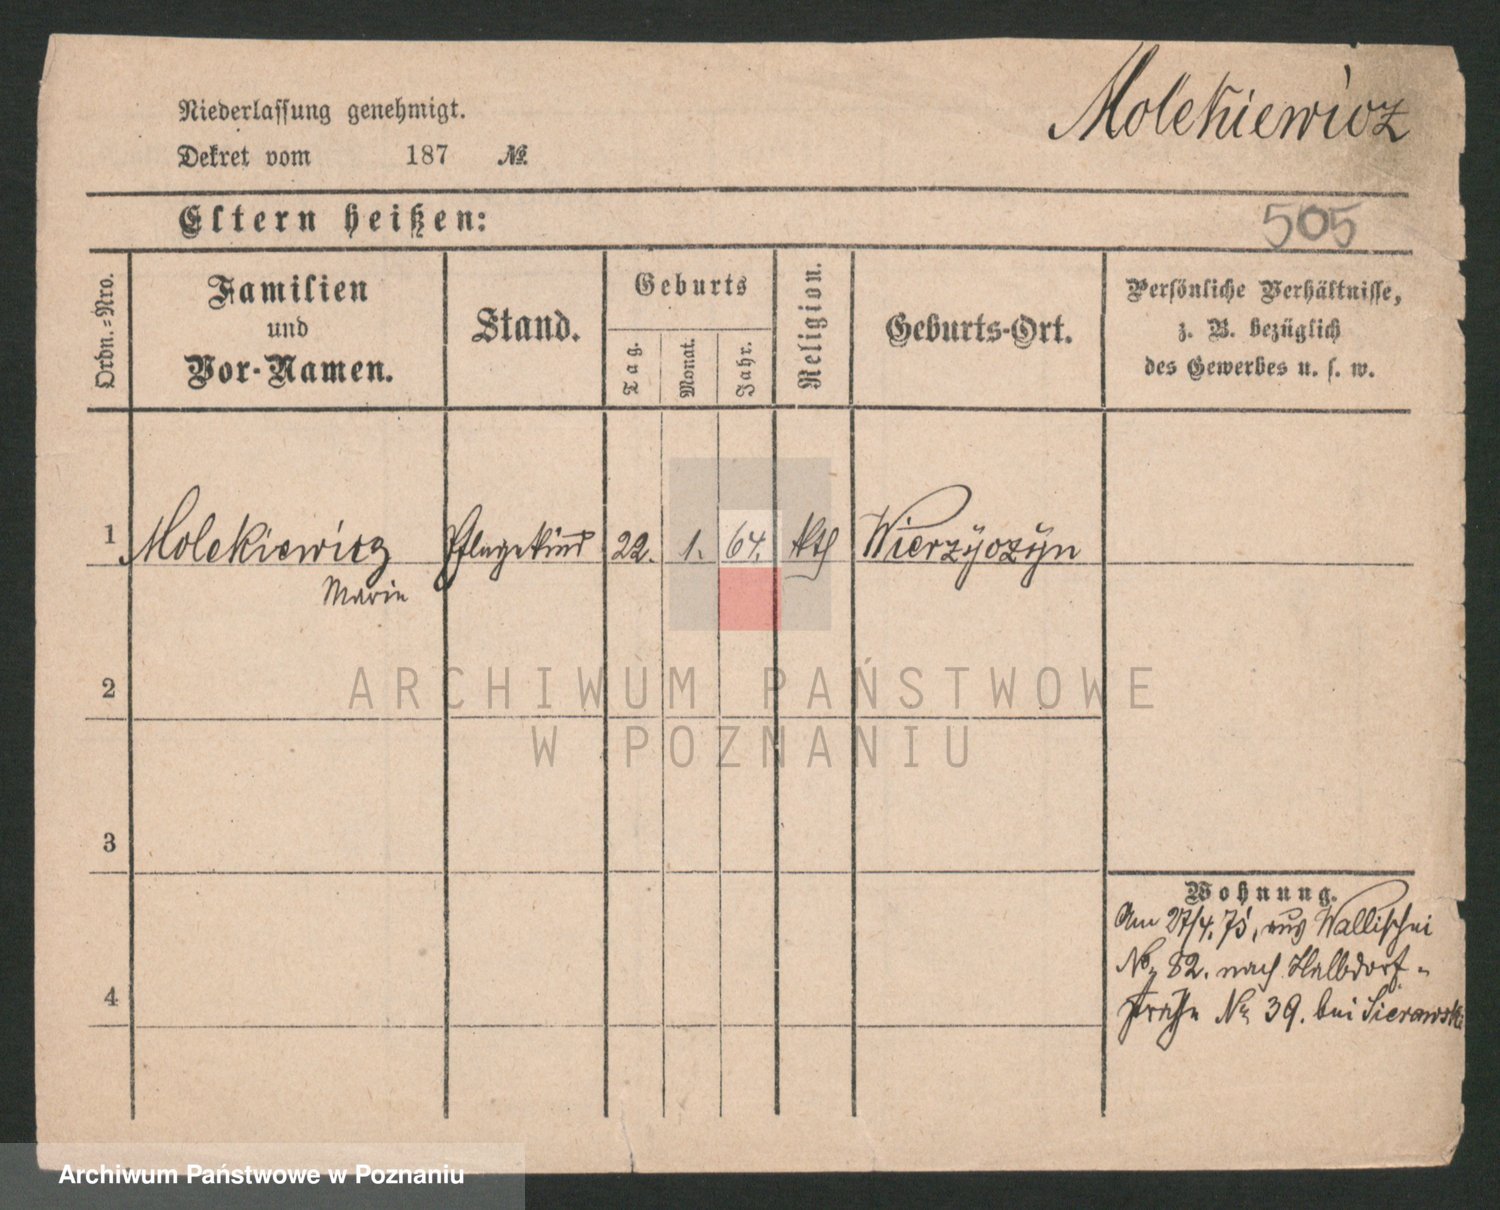 Niederlassung genehmigt.
Molekiewicz
Dekret vom 187 №
Eltern heißen:
505
Ordn.-Nro.
Familien und Vor-Namen.
Stand.
Geburts
Tag.
Monat.
Jahr.
Religion.
Geburts-Ort.
Persönliche Verhältnisse,
z. B. bezüglich
des Gewerbes u. s. w.
1 Molekiewicz Pflegekind 22. 1. 64. kth Wierzyczyn
Marie
2
3
4
Wohnung.
Am 27/4. 75, aus Wallischei
No 82. nach Halbdorf-
straße No 39. bei Sierawski
ARCHIWUM PAŃSTWOWE
W POZNANIU
Archiwum Państwowe w Poznaniu